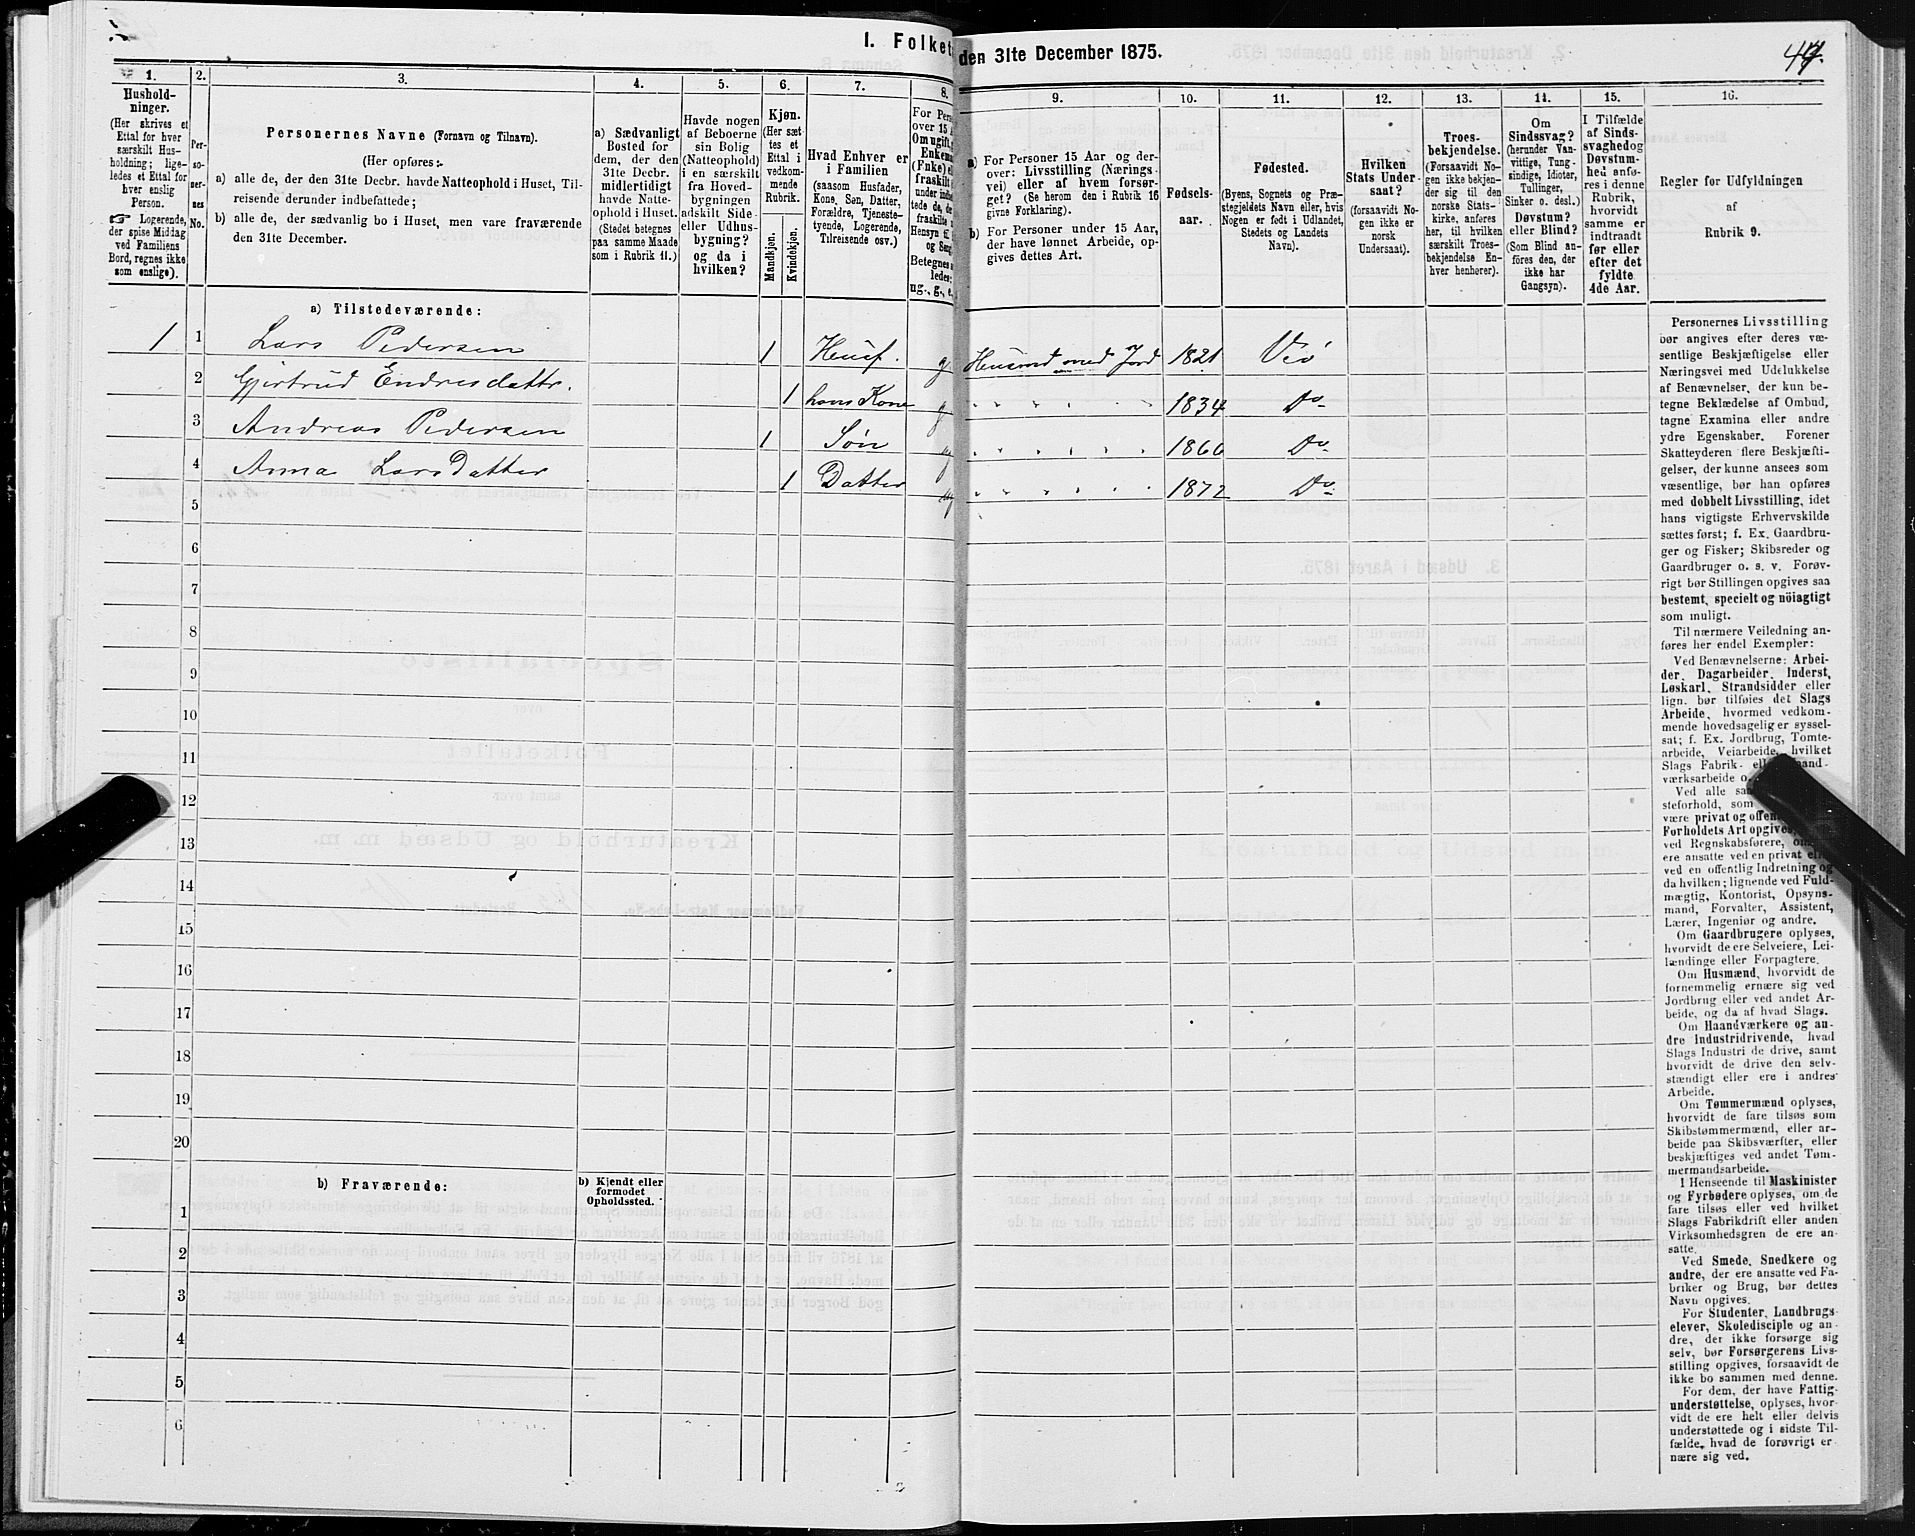 1. Folket den 31te December 1875.
47.
1.
Hushold-
ninger.
(Her skrives et
Ettal for hver
særskilt Hus-
holdning; lige-
ledes et Ettal for
hver enslig
Person.
☞ Logerende,
der spise Middag
ved Familiens
Bord, regnes ikke
som enslige).
2.
Per-
so-
ner-
nes
No.
3.
Personernes Navne (Fornavn og Tilnavn).
(Her opføres:-
a) alle de, der den 31te Decbr. havde Natteophold i Huset, Til-
reisende derunder indbefattede;
b) alle de, der sædvanlig bo i Huset, men vare fraværende
den 31te December.
4.
a) Sædvanligt
Bosted for
dem, der den
31te Decbr.
midlertidigt
havde Natte-
ophold i Huset.
(Stedet betegnes
paa samme Maade
som i Rubrik 11.)
5.
Havde nogen
af Beboerne
sin Bolig
(Natteophold)
i en særskilt
fra Hoved-
bygningen
adskilt Side-
eller Udhus-
bygning?
og da i
hvilken?
6.
Kjøn.
(Her sæt-
tes et
Ettal i
vedkom-
mende
Rubrik.
Mandkjøn.
Kvindekjøn.
7.
Hvad Enhver er
i Familien
(saasom Husfader,
Kone, Søn, Datter,
Forældre, Tjeneste-
tyende, Logerende,
Tilreisende osv.)
8.
For Pers
over 15 A
Om ugift,
Enkema
(Enke) e
fraskilt
under indbe
tede de, de
fraskilte
Hensyn til
og Seng
Betegnes
ledes:
ug., g., e.
9.
a) For Personer 15 Aar og der-
over: Livsstilling (Nærings-
vei) eller af hvem forsør-
get? (Se herom den i Rubrik 16
givne Forklaring).
b) For Personer under 15 Aar,
der have lønnet Arbeide, op-
gives dettes Art.
10.
Fødsels-
aar.
11.
Fødested.
(Byens, Sognets og Præ-
stegjeldets Navn eller, hvis
Nogen er født i Udlandet,
Stedets og Landets
Navn).
12.
Hvilken
Stats Under-
saat?
(forsaavidt No-
gen ikke er
norsk
Undersaat).
13.
Troes-
bekjendelse.
(Forsaavidt No-
gen ikke bekjen-
der sig til den
norske Stats-
kirke, anføres
her, til hvilken
særskilt Troes-
bekjendelse En-
hver henhører).
14.
Om
Sindssvag?
(herunder Van-
vittige, Tung-
sindige, Idioter,
Tullinger,
Sinker o. desl.)
Døvstum?
eller Blind?
(Som Blind an-
föres den, der
ikke har
Gangsyn).
15.
I Tilfælde
af Sinds-
svaghed og
Døvstum-
hed anfø-
res i denne
Rubrik,
hvorvidt
samme er
indtraadt
før eller
efter det
fyldte
4de Aar.
16.
Regler for Udfyldningen
af
Rubrik 9.
a) Tilstedeværende:
1 1 Lars Pedersen 1 Husf. g Husmd med Jord 1821 Veö
2 Gjertrud Endresdattr. 1 hans Kone g " " " " " 1834 Do
3 Andreas Pedersen 1 Søn ug " " " " " 1866 Do
4 Anna Larsdatter 1 Datter ug " " " " " 1872 Do
5
6
7
8
9
10
11
12
13
14
15
16
17
18
19
20
b) Fraværende:
b) Kjendt eller
formodet
Opholdssted.
1
2
3
4
5
6
Personernes Livsstilling
bør angives efter deres væ-
sentlige Beskjæftigelse eller
Næringsvei med Udelukkelse
af Benævnelser, der kun be-
tegne Beklædelse af Ombud,
tagne Examina eller andre
ydre Egenskaber. Forener
Skatteyderen flere Beskjæfti-
gelser, der kunne ansees som
væsentlige, bør han opføres
med dobbelt Livsstilling, idet
hans vigtigste Erhvervskilde
sættes først; f. Ex. Gaardbru-
ger og Fisker; Skibsreder og
Gaardbruger o. s. v. Forøv-
rigt bør Stillingen opgives saa
bestemt, specielt og nöiagtigt
som muligt.
Til nærmere Veiledning an-
føres her endel Exempler:
Ved Benævnelserne: Arbei-
der, Dagarbeider, Inderst,
Løskarl, Strandsidder eller
lign. bør tilføies det Slags
Arbeide, hvormed vedkom-
mende hovedsagelig er syssel-
sat; f. Ex. Jordbrug, Tomte-
arbeide, Veiarbeide, hvilket
Slags Fabrik- el Haand-
værksarbeide o.
Ved alle
steforhold, som
være privat og offen
Forholdets Art opgives,
ved Regnskabsførere, om
ere ansatte ved en privat eller
ved en offentlig Indretning og
da hvilken; lignende ved Fuld-
mægtig, Kontorist, Opsyns-
mand, Forvalter, Assistent,
Lærer, Ingeniør og andre.
Om Gaardbrugere oplyses,
hvorvidt de ere Selveiere, Lei-
lændinge eller Forpagtere.
Om Husmænd, hvorvidt de
fornemmelig ernære sig ved
Jordbrug eller ved andet Ar-
beide, og da af hvad Slags.
Om Haandværkere og an-
dre Industridrivende, hvad
Slags Industri de drive, samt
hvorvidt de drive den selv-
stændigt eller ere i andres
Arbeide.
Om Tømmermænd oplyses,
hvorvidt de fare tilsøs som
Skibstømmermænd, eller ar-
beide paa Skibsværfter, eller
beskjæftiges ved andet Tøm-
mermandsarbeide.
I Henseende til Maskinister
og Fyrbødere oplyses, om de
fare tilsøs eller ved hvilket
Slags Fabrikdrift eller anden
Virksomhedsgren de ere an-
satte.
Ved Smede, Snedkere og
andre, der ere ansatte ved Fa-
briker og Brug, bør dettes
Navn opgives.
For Studenter, Landbrugs-
elever, Skoledisciple og an-
dre, der ikke forsørge sig
selv, bør Forsørgerens Livs-
stilling opgives, forsaavidt de
ikke bo sammen med denne.
For dem, der have Fattig-
understøttelse, oplyses, hvor-
vidt de ere helt eller delvis
understøttede og i sidste Til-
fælde, hvad de forøvrigt er-
nære sig ved.